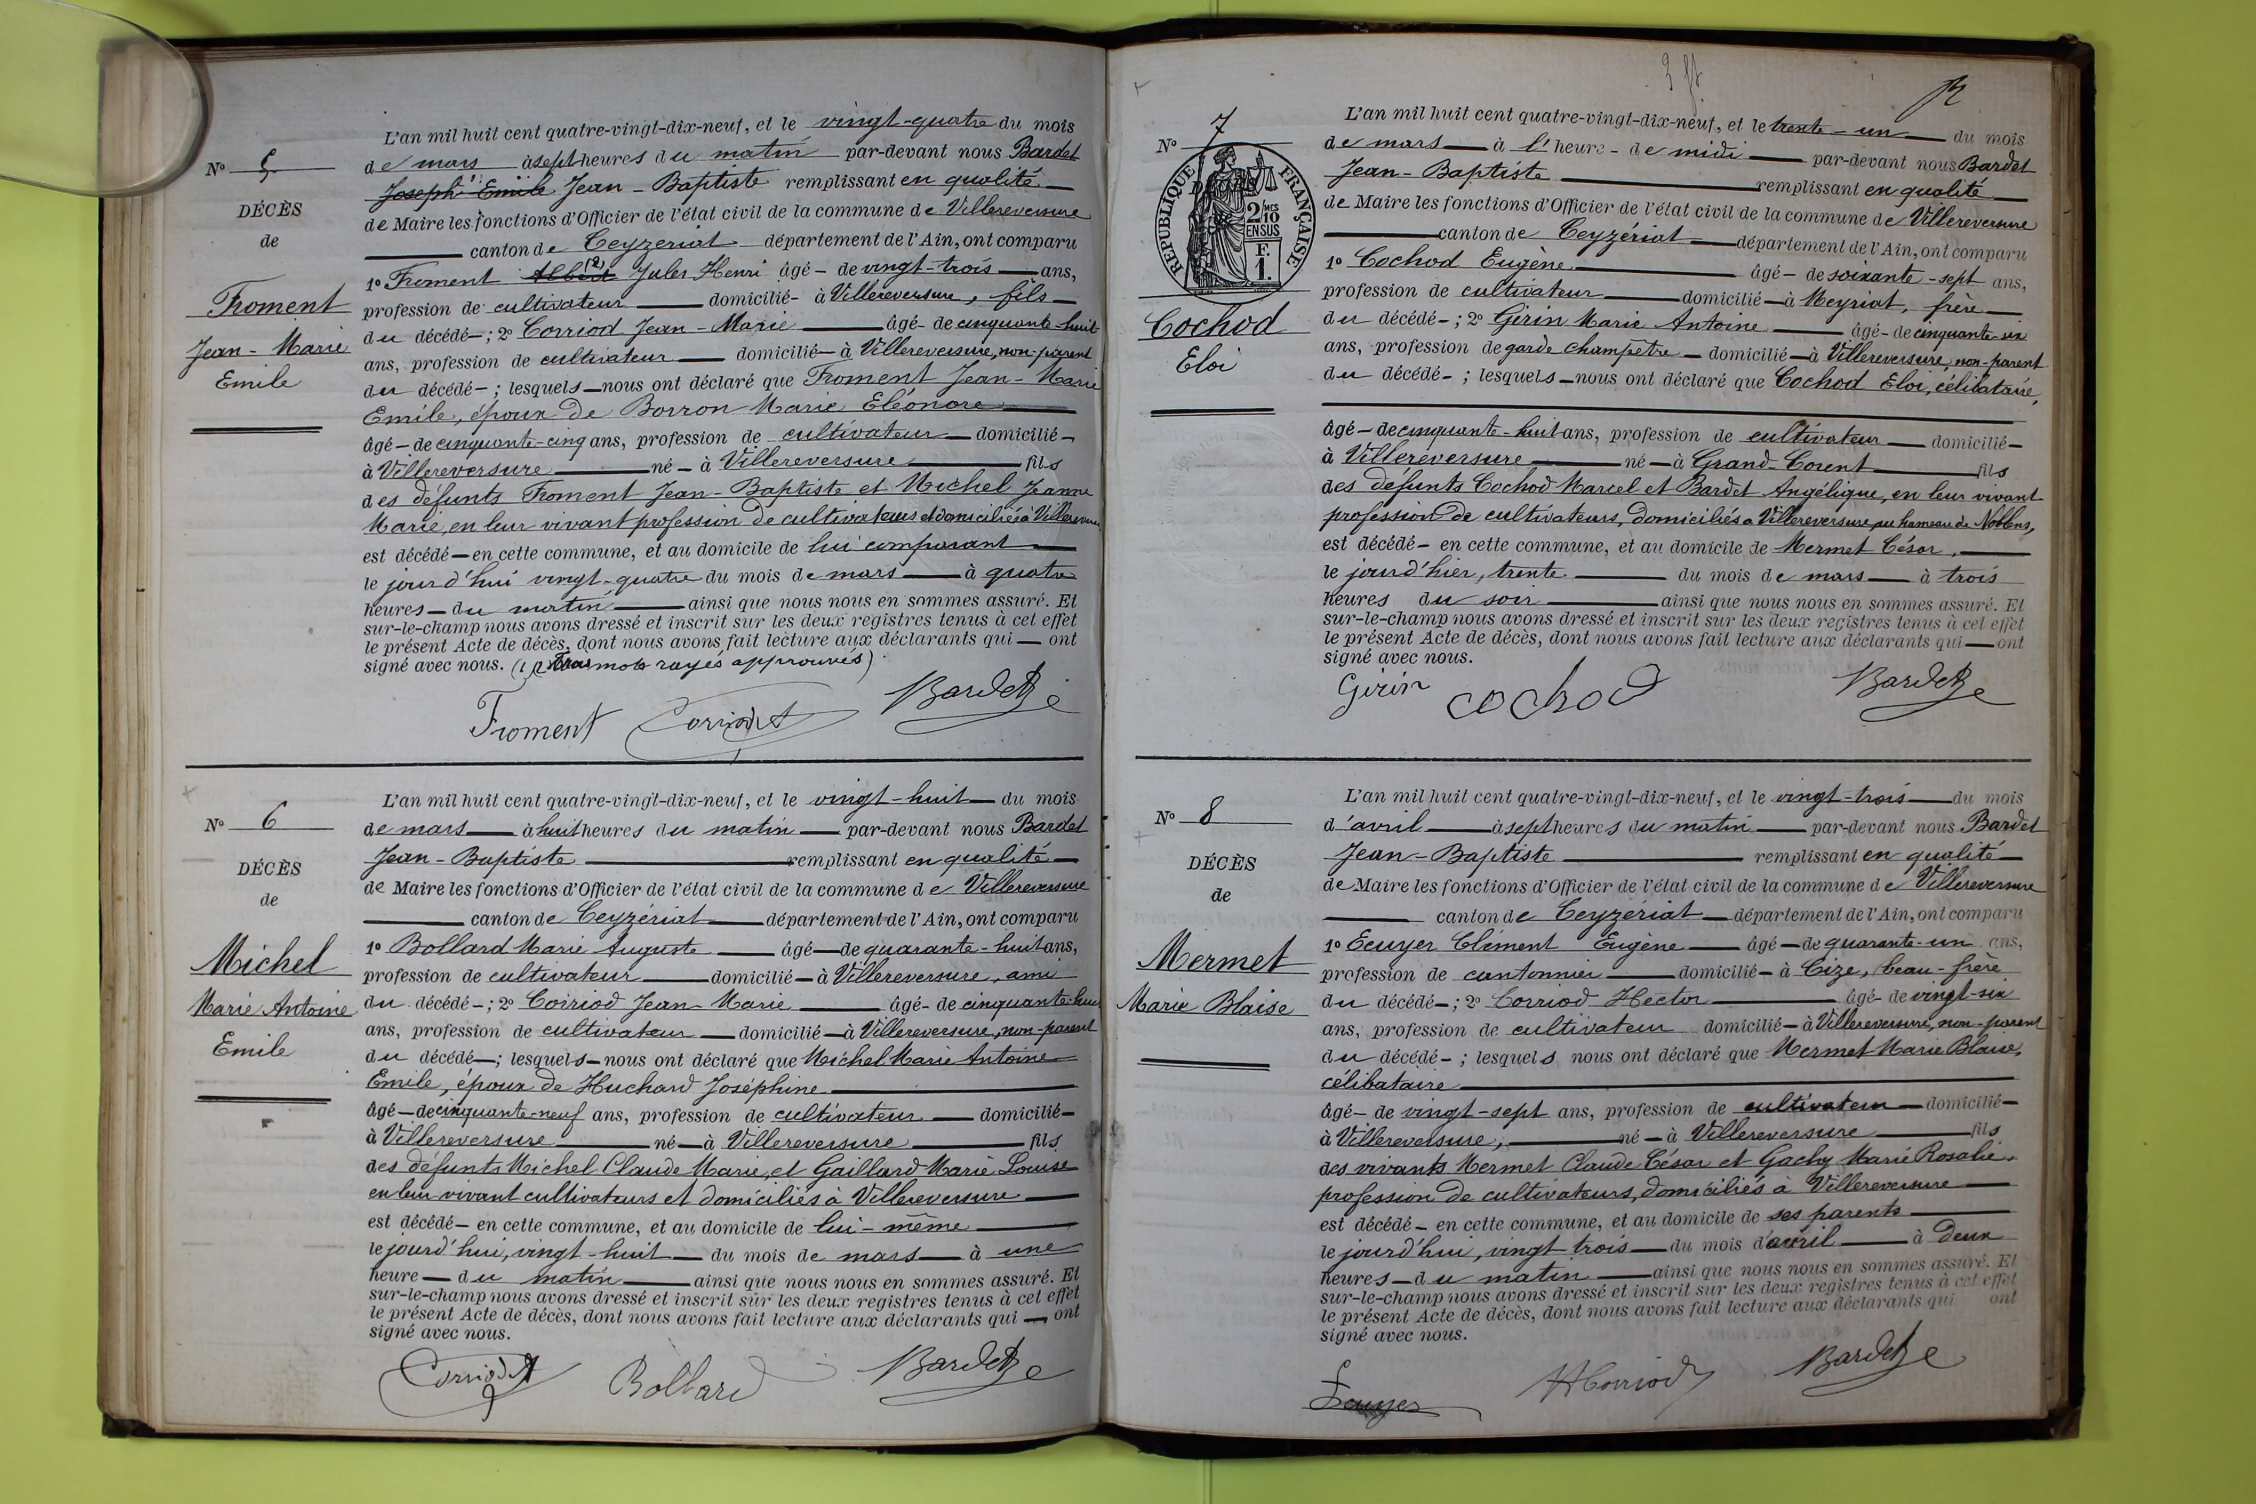 N° 5
DÉCÈS
de
Froment
Jean-Marie
Emile
L'an mil huit cent quatre-vingt-dix-neuf, et le vingt-quatre du mois
de mars à sept heures du matin par-devant nous Bardet
Joseph Emile Jean-Baptiste remplissant en qualité
de Maire les fonctions d'Officier de l'état civil de la commune de Villereversure
canton de Ceyzériat département de l'Ain, ont comparu
1° Froment Albert (2) Jules Henri âgé de vingt-trois ans,
profession de cultivateur domicilié à Villereversure, fils
du décédé ; 2° Corriod Jean-Marie âgé de cinquante-huit
ans, profession de cultivateur domicilié à Villereversure, non-parent
du décédé ; lesquels nous ont déclaré que Froment Jean-Marie
Emile, époux de Borron Marie Eléonore
âgé de cinquante-cinq ans, profession de cultivateur domicilié
à Villereversure né à Villereversure fils
des défunts Froment Jean-Baptiste et Michel Jeanne
Marie, en leur vivant profession de cultivateurs et domiciliés à Villereversure
est décédé en cette commune, et au domicile de lui comparant
le jourd'hui vingt-quatre du mois de mars à quatre
heures du matin ainsi que nous nous en sommes assuré. Et
sur-le-champ nous avons dressé et inscrit sur les deux registres tenus à cet effet
le présent Acte de décès, dont nous avons fait lecture aux déclarants qui ont
signé avec nous. (1, 2 Trois mots rayés approuvés)
Froment Corriod Bardet
N° 6
DÉCÈS
de
Michel
Marie Antoine
Emile
L'an mil huit cent quatre-vingt-dix-neuf, et le vingt-huit du mois
de mars à huit heures du matin par-devant nous Bardet
Jean-Baptiste remplissant en qualité
de Maire les fonctions d'Officier de l'état civil de la commune de Villereversure
canton de Ceyzériat département de l'Ain, ont comparu
1° Bollard Marie Auguste âgé de quarante-huit ans,
profession de cultivateur domicilié à Villereversure, ami
du décédé ; 2° Corriod Jean-Marie âgé de cinquante-huit
ans, profession de cultivateur domicilié à Villereversure, non-parent
du décédé ; lesquels nous ont déclaré que Michel Marie Antoine
Emile, époux de Huchard Joséphine
âgé de cinquante-neuf ans, profession de cultivateur domicilié
à Villereversure né à Villereversure fils
des défunts Michel Claude Marie, et Gaillard Marie Louise
en leur vivant cultivateurs et domiciliés à Villereversure
est décédé en cette commune, et au domicile de lui-même
le jourd'hui, vingt-huit du mois de mars à une
heure du matin ainsi que nous nous en sommes assuré. Et
sur-le-champ nous avons dressé et inscrit sur les deux registres tenus à cet effet
le présent Acte de décès, dont nous avons fait lecture aux déclarants qui ont
signé avec nous.
Corriod Bollard Bardet
N° 7
RÉPUBLIQUE FRANÇAISE
2/10 MES
EN SUS
F.
1.
Cochod
Eloi
L'an mil huit cent quatre-vingt-dix-neuf, et le trente-un du mois
de mars à l'heure de midi par-devant nous Bardet
Jean-Baptiste remplissant en qualité
de Maire les fonctions d'Officier de l'état civil de la commune de Villereversure
canton de Ceyzériat département de l'Ain, ont comparu
1° Cochod Eugène âgé de soixante-sept ans,
profession de cultivateur domicilié à Meyriat, frère
du décédé ; 2° Girin Marie Antoine âgé de cinquante-six
ans, profession de garde champêtre domicilié à Villereversure, non-parent
du décédé ; lesquels nous ont déclaré que Cochod Eloi, célibataire,
âgé de cinquante-huit ans, profession de cultivateur domicilié
à Villereversure né à Grand-Corent fils
des défunts Cochod Marcel et Bardet Angélique, en leur vivant
profession de cultivateurs, domiciliés à Villereversure au hameau de Noblens,
est décédé en cette commune, et au domicile de Mermet César,
le jourd'hier, trente du mois de mars à trois
heures du soir ainsi que nous nous en sommes assuré. Et
sur-le-champ nous avons dressé et inscrit sur les deux registres tenus à cet effet
le présent Acte de décès, dont nous avons fait lecture aux déclarants qui ont
signé avec nous.
Girin cochod Bardet
N° 8
DÉCÈS
de
Mermet
Marie Blaise
L'an mil huit cent quatre-vingt-dix-neuf, et le vingt-trois du mois
d'avril à sept heures du matin par-devant nous Bardet
Jean-Baptiste remplissant en qualité
de Maire les fonctions d'Officier de l'état civil de la commune de Villereversure
canton de Ceyzériat département de l'Ain, ont comparu
1° Ecuyer Clément Eugène âgé de quarante-un ans,
profession de cantonnier domicilié à Cize, beau-frère
du décédé ; 2° Corriod Hector âgé de vingt-six
ans, profession de cultivateur domicilié à Villereversure, non-parent
du décédé ; lesquels nous ont déclaré que Mermet Marie Blaise,
célibataire
âgé de vingt-sept ans, profession de cultivateur domicilié
à Villereversure, né à Villereversure fils
des vivants Mermet Claude César et Gachy Marie Rosalie,
profession de cultivateurs, domiciliés à Villereversure
est décédé en cette commune, et au domicile de ses parents
le jourd'hui, vingt trois du mois d'avril à deux
heures du matin ainsi que nous nous en sommes assuré. Et
sur-le-champ nous avons dressé et inscrit sur les deux registres tenus à cet effet
le présent Acte de décès, dont nous avons fait lecture aux déclarants qui ont
signé avec nous.
Ecuyer HCorriod Bardet